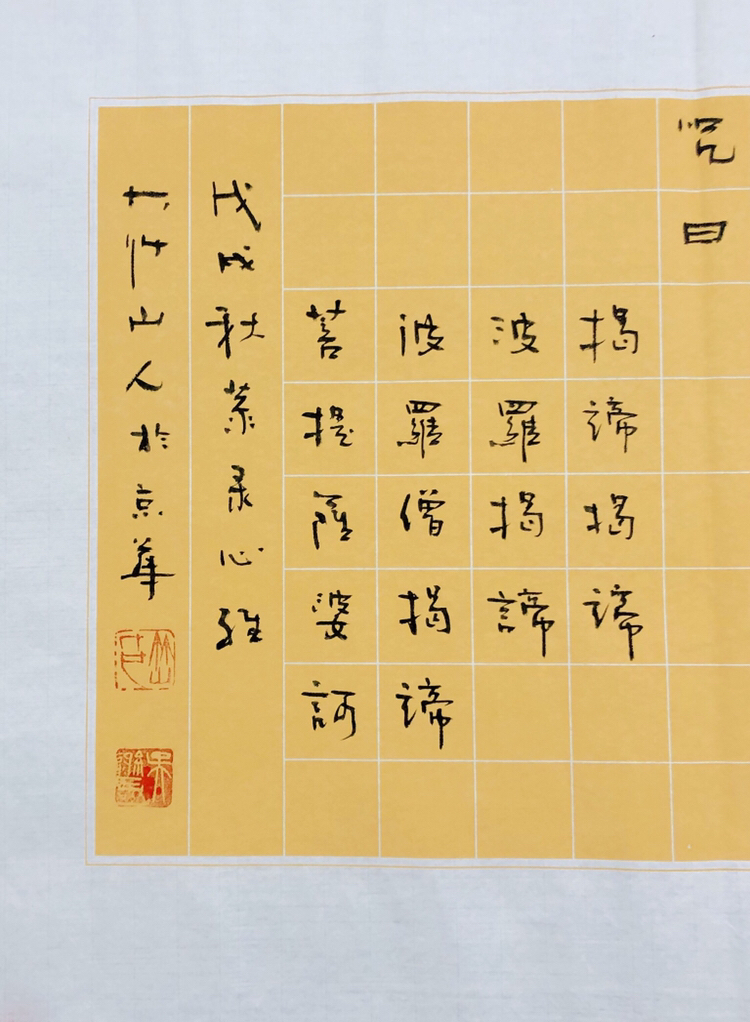 咒曰
揭諦揭諦
波羅揭諦
波羅僧揭諦
菩提薩婆訶
戊戌秋敬录心經
山人於京華